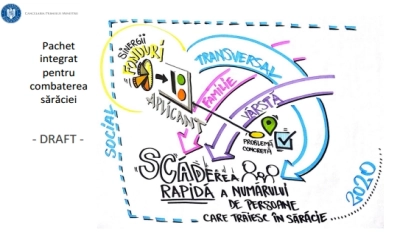 CANCELARIA PRIM-MINISTRULUI
Pachet
integrat
pentru
combaterea
sărăciei
- DRAFT -
SINERGII
FONDURI
APLICANT
TRANSVERSAL
FAMILIE
VÂRSTĂ
SOCIAL
PROBLEMĂ
CONCRETĂ
SCĂDEREA
RAPIDĂ A NUMĂRULUI
DE PERSOANE
CARE TRĂIESC ÎN SĂRĂCIE...
2020